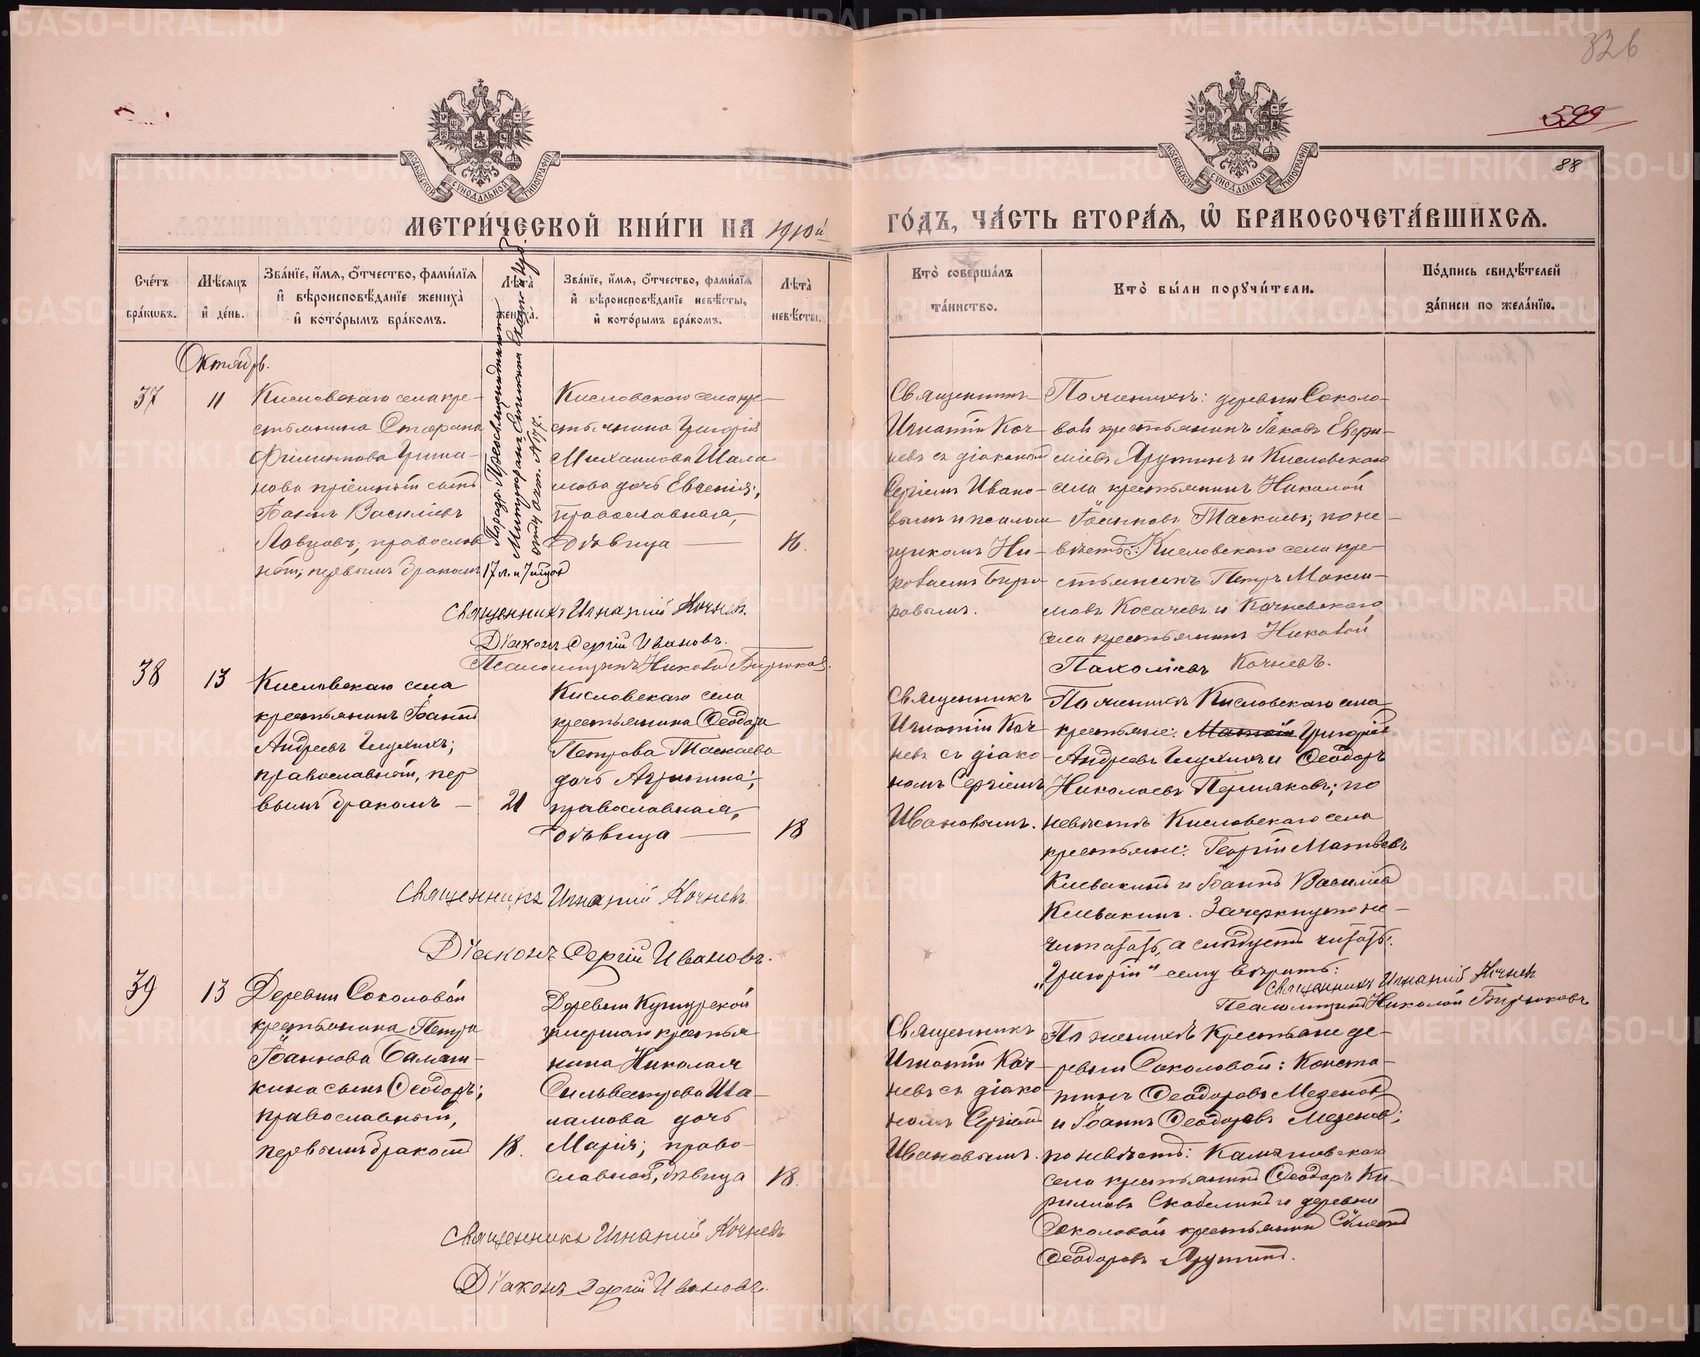 326
599
88
МОСКОВСКОЙ СѴНОДАЛЬНОЙ ТИПОГРАФІИ
МОСКОВСКОЙ СѴНОДАЛЬНОЙ ТИПОГРАФІИ
МЕТРИ́ЧЕСКОЙ КНИ́ГИ НА 1910й
ГО́ДЪ, ЧА́СТЬ ВТОРА́Я, Ѡ҆ БРАКОСОЧЕТА́ВШИХСЯ.
Сче́тъ бра́кѡвъ.
Мѣ́сяцъ и҆ де́нь.
Зва́нїе, и҆́мя, ѻ҆́тчество, фами́лїя
и҆ вѣроисповѣ́данїе жениха̀
и҆ кото́рымъ бра́комъ.
Лѣ́та жениха̀.
Зва́нїе, и҆́мя, ѻ҆́тчество, фами́лїя
и҆ вѣроисповѣ́данїе невѣ́сты,
и҆ кото́рымъ бра́комъ.
Лѣ́та невѣ́сты.
Кто̀ соверша́лъ
та́инство.
Кто̀ бы́ли порꙋчи́тели.
По́дпись свидѣ́телей
за́писи по жела́нїю.
Октябрь.
37
11
Кисловскаго села кре-
стьянина Стефана
Филиппова
нова пріемный сынъ
Іоаннъ Васильевъ
Ловцовъ, православ
ный; первымъ бракомъ
17 л. и 7 мѣс.
Кисловскаго села кре-
стьянина Григорія
Михаилова Шала
мова дочь Евгенія;
православная,
дѣвица
16.
Священникъ
Игнатій Коч
невъ съ діаконом
Сергіем Ивано-
вымъ и псалом
щикомъ Ни-
колаемъ Бирю
ковымъ.
По женихѣ: деревни Соколо-
вой крестьянинъ Іаковъ
и Кисловскаго
села крестьянинъ Николай
Іоанновъ Таскаевъ; по не-
вѣстѣ: Кисловскаго села кре-
стьянинъ Петръ Макси-
мовъ Косачевъ и Кочневскаго
села крестьянинъ Николай
Пахоміевъ Кочневъ.
Священникъ Игнатій Кочневъ.
Діаконъ Сергій Ивановъ.
Псаломщикъ Николай Бирюков
38
13
Кисловскаго села
крестьянинъ Іоаннъ
Андреевъ Глухихъ;
православный, пер
вымъ бракомъ
21
Кисловскаго села
крестьянина Ѳеодора
Петрова Таскаева
дочь Агриппина;
православная,
дѣвица
18
Священникъ
Игнатій Коч
невъ съ діако-
номъ Сергіемъ
Ивановымъ.
По женихѣ Кисловскаго села
крестьяне: Григорій
Андреевъ Глухихъ и Ѳеодоръ
Николаевъ Пермяковъ; по
невѣстѣ Кисловскаго села
крестьяне: Георгій Матвѣевъ
Клевакинъ и Іоаннъ Васильев
Клевакинъ. Зачеркнутое не
читать, а слѣдуетъ читать:
„Григорій" сему вѣрить:
Священникъ Игнатій Кочнев
Псаломщикъ Николай Бирюковъ
Священникъ Игнатій Кочневъ
Діаконъ Сергій Ивановъ.
39
13
Деревни Соколовой
крестьянина Петра
Іоаннова Балаш-
кина сынъ Ѳеодоръ;
православный,
первымъ бракомъ
18.
Деревни
умершаго крестья
нина Николая
Сильвестрова Ша-
ламова дочь
Марія; право-
славной, дѣвица
18.
Священникъ
Игнатій Коч-
невъ съ діако-
номъ Сергіем
Ивановымъ.
По женихѣ крестьяне де-
ревни Соколовой: Конста-
тинъ Ѳеодоровъ Мезенов
и Іоаннъ Ѳеодоровъ Мезенов;
по невѣстѣ:
села крестьянин Ѳеодоръ Ки-
рилловъ и деревни
Соколовой крестьянин
Ѳеодоровъ
Священникъ Игнатій Кочневъ
Діаконъ Сергій Ивановъ.
METRIKI.GASO-URAL.RU